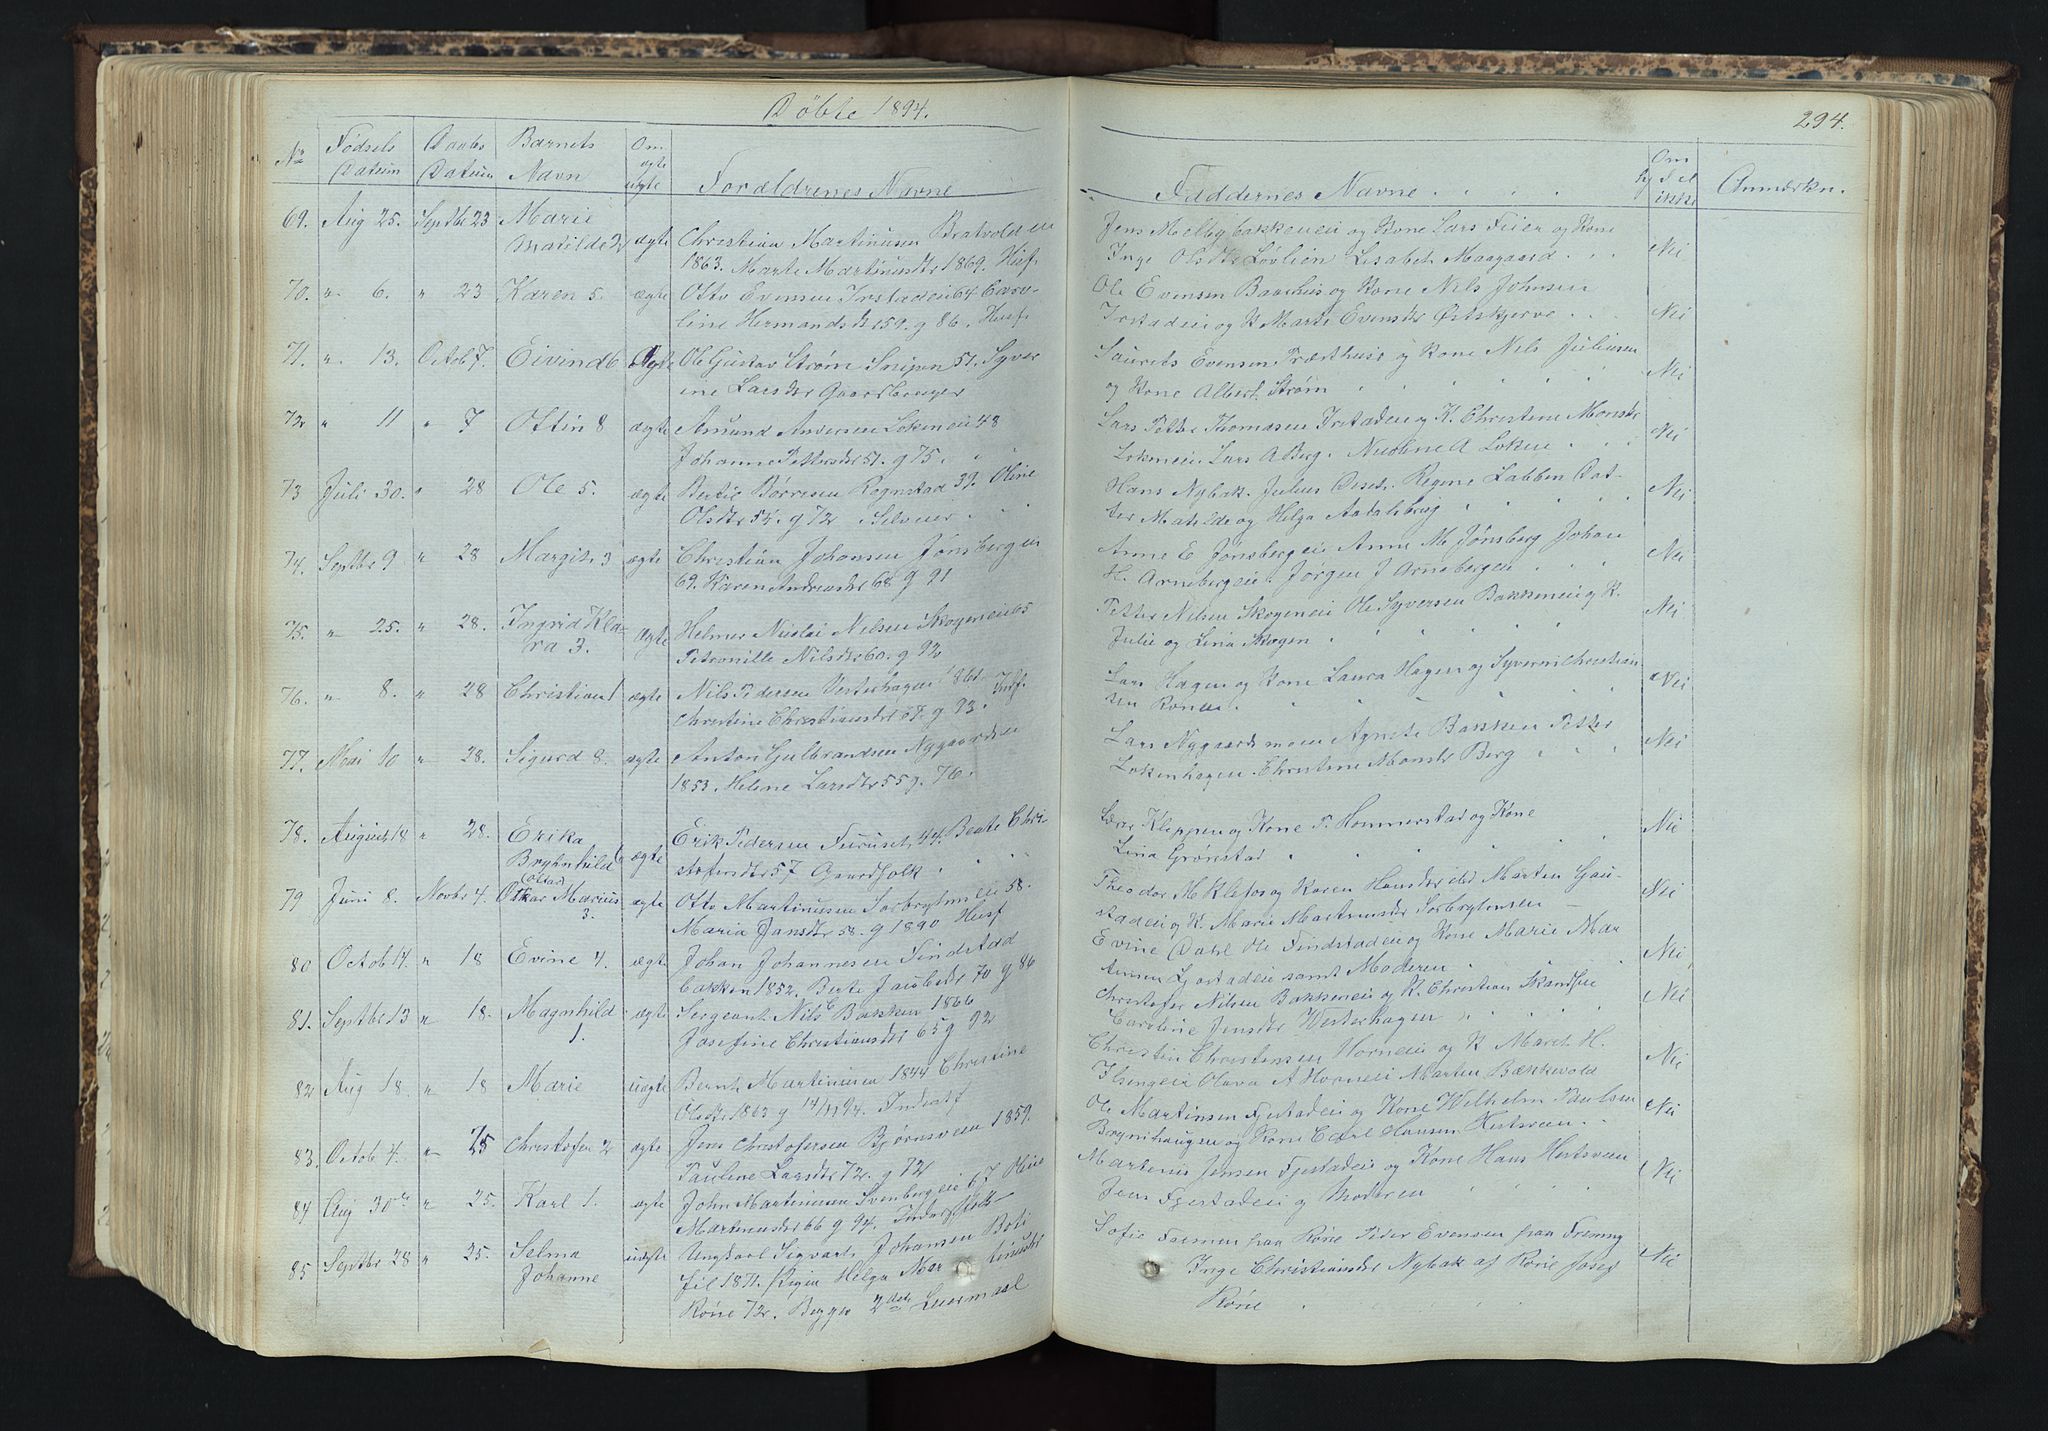 Døbte 1894.
294.
No Fødsels Datum Daabs Datum Barnets Navn Om ægte uægte Forældrenes Navne
Faddernes Navne Om hj. d. el ikke Anmærkn.
69. Aug 25. Septbr 23 Marie Matilde 2 ægte Christian Martinusen Bratvolden
1863. Marte Martinusdtr 1869. Husf
Jens Melbybakkeneie og Kone Lars Feier og Kone
Inge Olsdtr Løvlien Lisabet Maagaard Nei
70. " 6. " 23 Karen 5. ægte Otto Evensen Irstadeie 64 Caro-
line Hermandsdtr 59. g 86. Husf
Ole Evensen Baashus og Kone Nils Johnsen
Irstadeie og K Marte Evensdtr Østskjerve Nei
71. " 13. Octob 7. Eivind 6 ægte Ole Gustav Strøm Snipen 51. Syver
ine Larsdtr Gaardbruger
Laurits Evensen Præsthus og Kone Nils Juliusen
og Kone Albert Strøm Nei
72 " 11 " 7 Ottin 8 ægte Amund Andersen Lokeneie 48
Johanne Pettersdtr 51. g 75.
Lars Petter Thomasen Irstadeie og K. Christine Monsdtr
Lokeneie Lars A Berg. Nicoline A Loken Nei
73 Juli 30. " 28 Ole 5. ægte Bertie Børresen Rognstad 39. Oline
Olsdtr 54. g 72 Selveier
Hans Nybak. Julius Oset. Regine Labben Dat-
ter Matilde og Helga Aadalsbrug Nei
74. Septbr 9 " 28 Margit 3 ægte Christian Johansen Jønsbergeie
69. Karen Andreasdtr 68. g 91
Anne E Jønsbergeie Anne M Jønsberg Johan
H. Arnebergeie. Jørgen J Arnebergeie Nei
75. " 25. " 28. Ingrid Kla-
ra 3. ægte Helmer Nicolai Nilsen Skogeneie 65
Petronille Nilsdtr 60. g 92
Petter Nilsen Skogeneie Ole Syversen Bakkeneie g K.
Julie og Lina Skogen Nei
76. " 8. " 28 Christian 1 ægte Nils Pedersen Vesterhagen 1861. Indf.
Christine Christiansdtr 67. g 93.
Lars Hagen og Kone Laura Hagen og Syverin Christian
sen Ronæ. Nei
77. Mai 10 " 28. Sigurd 8. ægte Anton Gulbrandsen Nygaardseie
1853. Helene Larsdtr 55 g. 76.
Lars Nygaardsmoen Agnete Bakken Petter
Lokenhagen Christine Monsdtr Berg Nei
78. August 18 " 28. Erika
Brynhild 6 ægte Erik Pedersen Furuset 44. Beate Chri-
stofersdtr 57 Gaardfolk
Lars Kleppen og Kone P. Hommerstad og Kone
Lina Grønstad Nei
79 Juni 8. Novbr 4. Oskar Marius
3. ægte Otto Martinusen Sorbryhneneie 58.
Maria Jansdtr 58. g 1890 Husf
Theodor M Klefos og Karen Hansdtr ibd Martin Gau-
stadeie og K. Marie Martinusdtr Sorbryhnsen Nei
80 Octob 14. " 18 Evine 4. ægte Johan Johannesen Findstad
bakken 1852. Berte Jacobsdtr 70 g 86
Evine Dahl Ole Findstadeie og Kone Marie Mar
tinsen Gjortadeie samt Moderen Nei
81. Septbr 13 " 18. Magnhild
1. ægte Sergeant Nils C Bakken 1866
Josefine Christiansdtr 65 g 92
Christofer Nilsen Bakkeneie g K. Christian Skandsen
Caroline Jensdtr Westerhagen Nei
82 Aug 18. " 18 Marie uægte Bernt Martinusen 1844 Christine
Olsdtr 1863 g 14/11 94. Inderstf
Christin Christensen Horneeie og K Maret H.
Ilsengeie Olava A Horneeie Marten Bækkevold Nei
83. Octob 4. " 25 Christofer 2 ægte Jens Christofersen Bjørnsveen 1859.
Pauline Larsdtr 72. g 92
Ole Martinsen Fjestadeie og Kone Wilhelm Paulsen
Brynihaugen og Kone Carl Hansen Hertsveen Nei
84 Aug 30te " 25. Karl 1. ægte John Martinusen Svenbergeie 67 Oline
Martinusdtr 66 g 94. Inderstfolk
Martenius Jensen Fjestadeie og Kone Hans Hertsveen
Jens Fjestadeie g Moderen Nei
85 Septbr 28 " 25. Selma
Johanne uægte Ungkarl Sigvart Johansen Boti
fil 1871. Pigen Helga Martinusdtr
Røne 72. Begges 2det Leiermaal
Sofie Formen paa Røne Peder Evensen paa Fremmy
Inge Christiansdtr Nybak af Røne Josef
Røne Nei